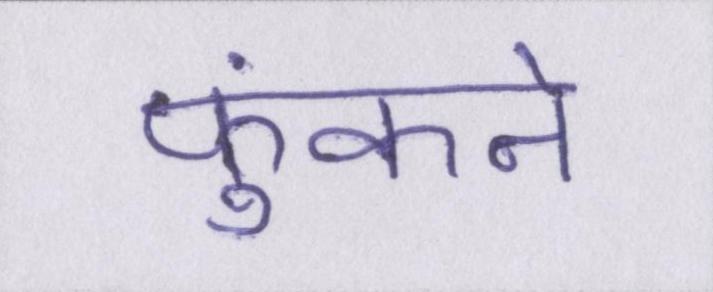 फुंकने